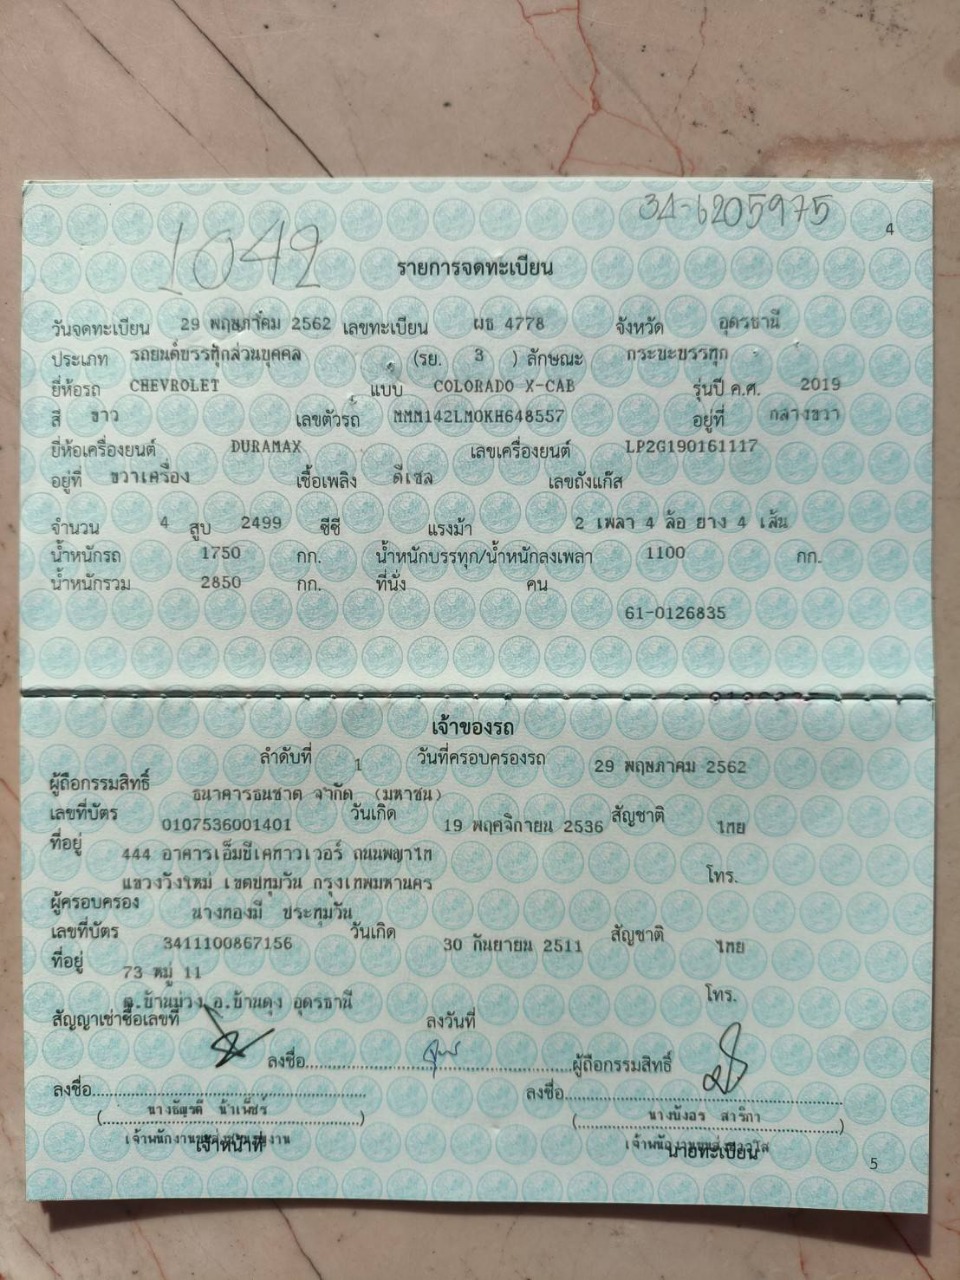 34-6205975
4
1042
รายการจดทะเบียน
วันจดทะเบียน 29 พฤษภาคม 2562 เลขทะเบียน ผธ 4778 จังหวัด อุดรธานี
ประเภท รถยนต์บรรทุกส่วนบุคคล (รย. 3 ) ลักษณะ กระบะบรรทุก
ยี่ห้อรถ CHEVROLET แบบ COLORADO X-CAB รุ่นปี ค.ศ. 2019
สี ขาว เลขตัวรถ MMM142LM0KH648557 อยู่ที่ กลางขวา
ยี่ห้อเครื่องยนต์ DURAMAX เลขเครื่องยนต์ LP2G190161117
อยู่ที่ ขวาเครื่อง เชื้อเพลิง ดีเซล เลขถังแก๊ส
จำนวน 4 สูบ 2499 ซีซี แรงม้า 2 เพลา 4 ล้อ ยาง 4 เส้น
น้ำหนักรถ 1750 กก. น้ำหนักบรรทุก/น้ำหนักลงเพลา 1100 กก.
น้ำหนักรวม 2850 กก. ที่นั่ง คน
61-0126835
เจ้าของรถ
ลำดับที่ 1 วันที่ครอบครองรถ 29 พฤษภาคม 2562
ผู้ถือกรรมสิทธิ์ ธนาคารธนชาต จำกัด (มหาชน)
เลขที่บัตร 0107536001401 วันเกิด 19 พฤศจิกายน 2536 สัญชาติ ไทย
ที่อยู่ 444 อาคารเอ็มบีเคทาวเวอร์ ถนนพญาไท
แขวงวังใหม่ เขตปทุมวัน กรุงเทพมหานคร โทร.
ผู้ครอบครอง นางทองมี ประทุมวัน
เลขที่บัตร 3411100867156 วันเกิด 30 กันยายน 2511 สัญชาติ ไทย
ที่อยู่ 73 หมู่ 11
ต.บ้านม่วง อ.บ้านดุง อุดรธานี โทร.
สัญญาเช่าซื้อเลขที่ ลงวันที่
ลงชื่อ ผู้ถือกรรมสิทธิ์
ลงชื่อ ลงชื่อ
( น้ำเพ็ชร์ ) ( นางบังอร สาริกา )
เจ้าหน้าที่ นายทะเบียน
5